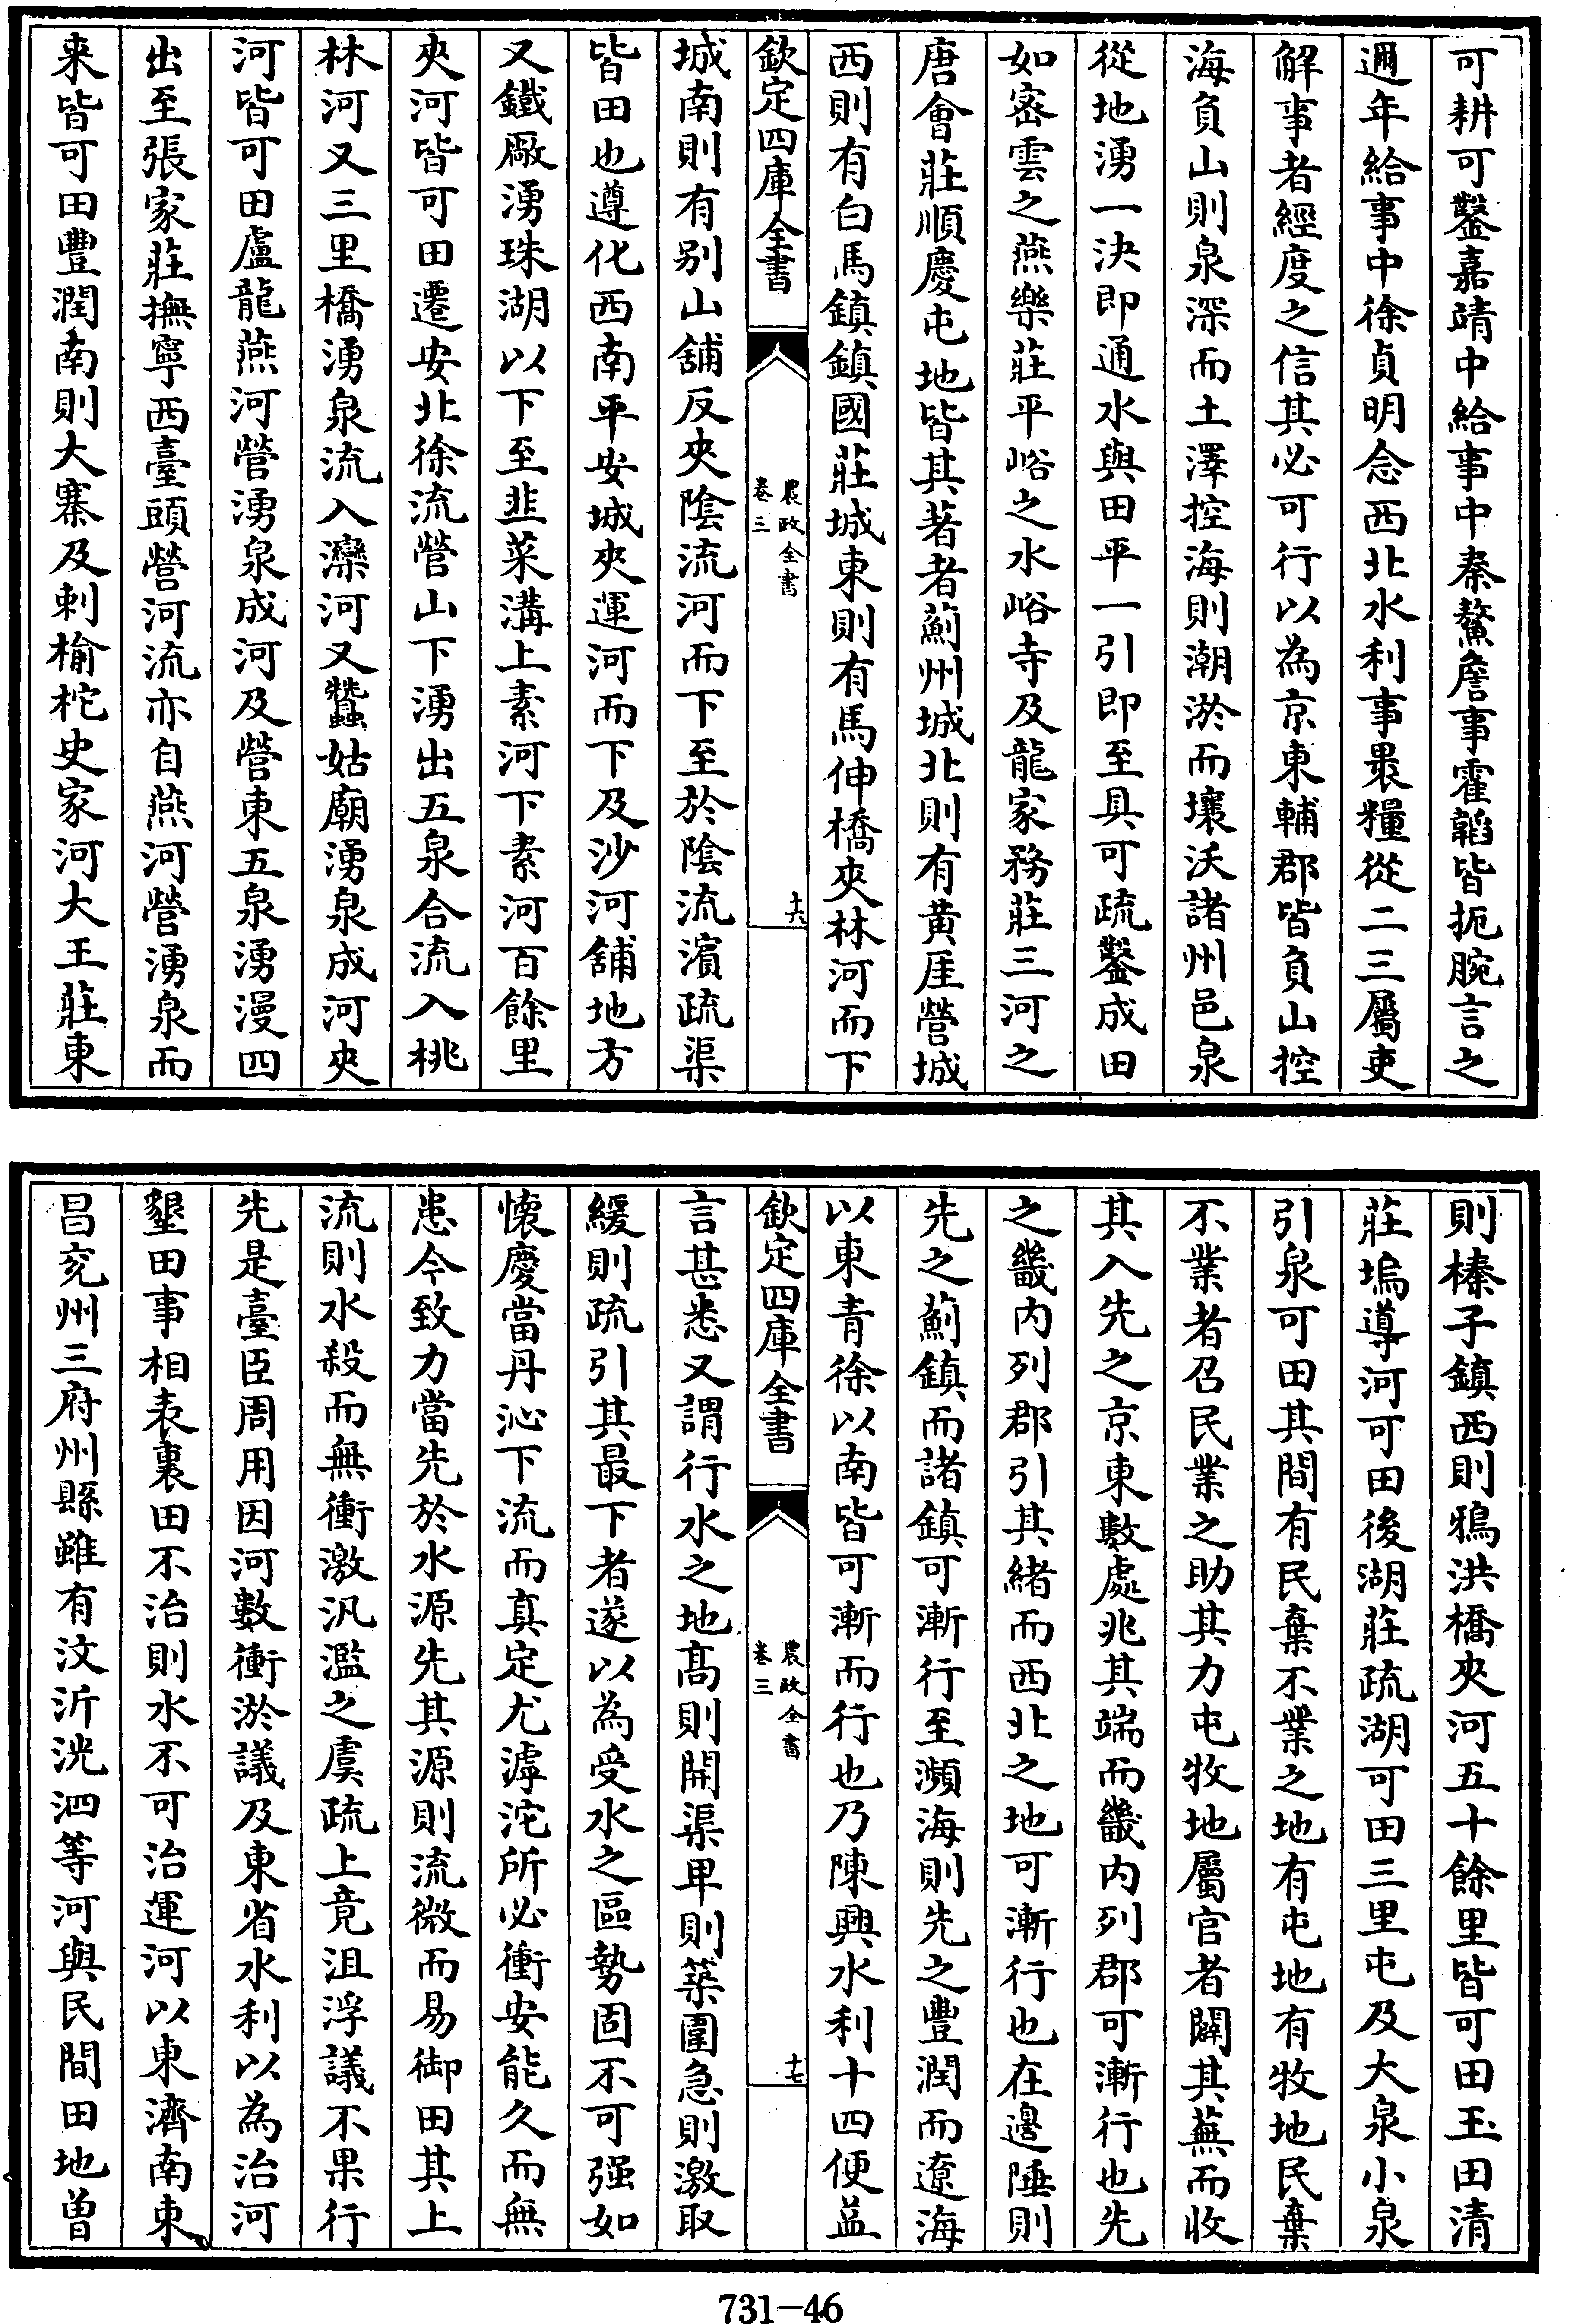 可耕可鑿嘉靖中給事中秦鰲詹事霍韜皆扼腕言之
邇年給事中徐貞明念西北水利事裹糧從二三屬吏
解事者經度之信其必可行以為京東輔郡皆負山控
海負山則泉深而土澤控海則潮淤而壤沃諸州邑泉
從地湧一決即通水與田平一引即至具可疏鑿成田
如密雲之燕樂莊平峪之水峪寺及龍家務莊三河之
唐會莊順慶屯地皆其著者薊州城北則有黄厓營城
西則有白馬鎮鎮國莊城東則有馬伸橋夾林河而下
欽定四庫全書
農政全書
卷三
十六
城南則有别山舖反夾陰流河而下至於陰流濵疏渠
皆田也遵化西南平安城夾運河而下及沙河舖地方
又鐵廠湧珠湖以下至韭菜溝上素河下素河百餘里
夾河皆可田遷安北徐流營山下湧出五泉合流入桃
林河又三里橋湧泉流入灤河又蠶姑廟湧泉成河夾
河皆可田盧龍燕河營湧泉成河及營東五泉湧漫四
出至張家莊撫寧西臺頭營河流亦自燕河營湧泉而
来皆可田豐潤南則大寨及刺榆柁史家河大王莊東
則榛子鎮西則鴉洪橋夾河五十餘里皆可田玉田清
莊塢導河可田後湖莊疏湖可田三里屯及大泉小泉
引泉可田其間有民棄不業之地有屯地有牧地民棄
不業者召民業之助其力屯牧地屬官者闢其蕪而收
其入先之京東數處兆其端而畿内列郡可漸行也先
之畿内列郡引其緒而西北之地可漸行也在邊陲則
先之薊鎮而諸鎮可漸行至瀕海則先之豐潤而遼海
以東青徐以南皆可漸而行也乃陳興水利十四便益
欽定四庫全書
農政全書
卷三
十七
言甚悉又謂行水之地髙則開渠卑則築圍急則激取
緩則疏引其最下者遂以為受水之區勢固不可强如
懐慶當丹沁下流而真定尤滹沱所必衝安能久而無
患今致力當先於水源先其源則流微而易御田其上
流則水殺而無衝激汎濫之虞疏上竟沮浮議不果行
先是臺臣周用因河數衝淤議及東省水利以為治河
墾田事相表裏田不治則水不可治運河以東濟南東
昌兖州三府州縣雖有汶沂洸泗等河與民間田地曽
731-46